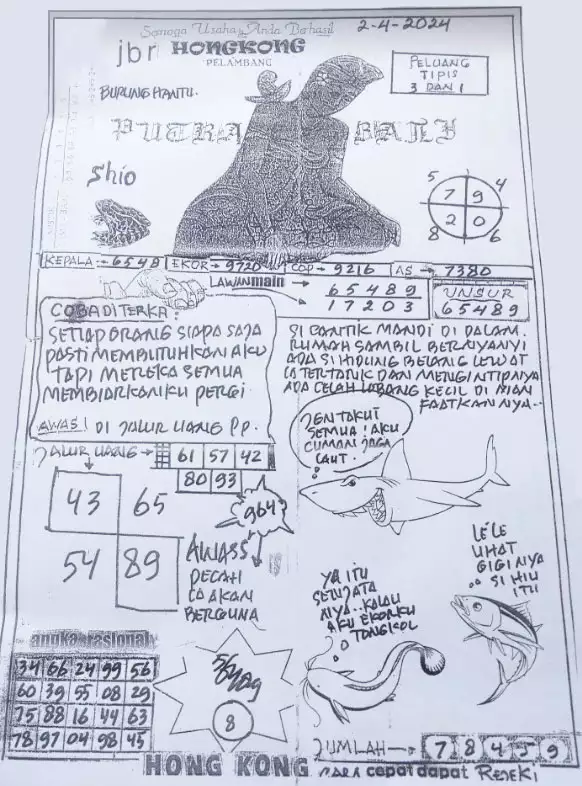 Semoga Usaha Anda Berhasil
2-4-2024
jbr HONGKONG
PELAMBANG
PELUANG
TIPIS
3 DAN 1
BURUNG HANTU.
PUTRA BALI
Shio
5 4
7 9
2 0
8 6
KEPALA → 6548 EKOR → 9720 COP → 9216 AS → 7380
LAWAN main → 65489
17203
UNSUR
65489
COBA DITERKA:
SETIAP ORANG SIAPA SAJA
PASTI MEMBUTUHKAN AKU
TAPI MEREKA SEMUA
MEMBIARKANKU PERGI
AWAS! DI JALUR UANG PP.
SI CANTIK MANDI DI DALAM.
RUMAH SAMBIL BERNYANYI
ADA SI HIDUNG BELANG LEWAT
IA TERTARIK DAN MENGINTIPNYA
ADA CELAH LOBANG KECIL DI MAN
FAATKAN NYA..
JALUR UANG → 61 57 42
80 93
JEN TAKUT
SEMUA! AKU
CUMAN JAGA
LAUT.
43 65
54 89
964
AWASS
PECAH
IA AKAN
BERGUNA
LELE
LIHAT
GIGI NYA
SI HIU
ITU
YA ITU
SENJATA
NYA.. KALAU
AKU EKORKU
TONGKOL
angka rasional
34 66 24 99 56
60 39 55 08 29
75 88 16 44 63
78 97 04 98 45
8
JUMLAH → 7 8 4 5 9
HONG KONG PARA cepat dapat REJEKI